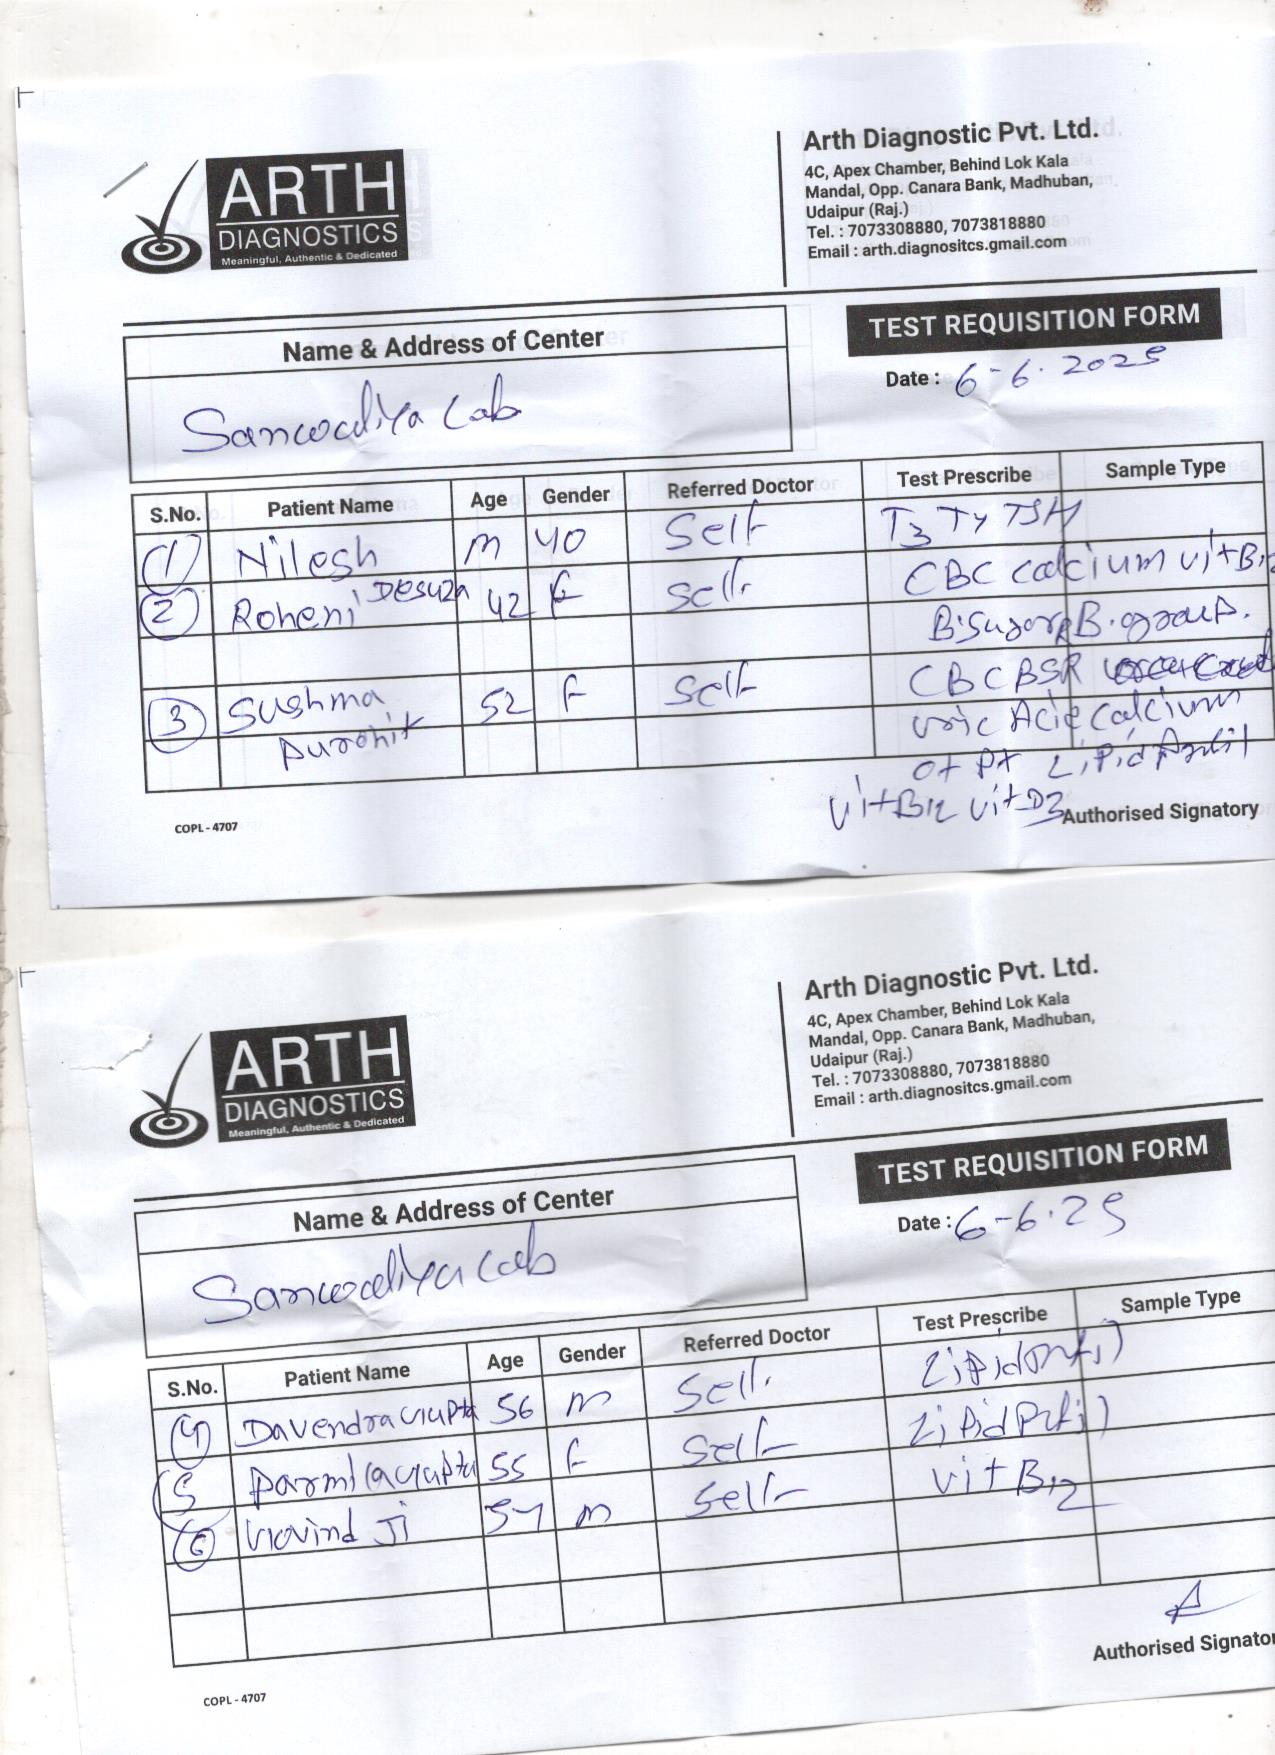 ARTH
DIAGNOSTICS
Meaningful, Authentic & Dedicated
Arth Diagnostic Pvt. Ltd.
4C, Apex Chamber, Behind Lok Kala
Mandal, Opp. Canara Bank, Madhuban,
Udaipur (Raj.)
Tel. : 7073308880, 7073818880
Email : arth.diagnositcs.gmail.com
Name & Address of Center
TEST REQUISITION FORM
Date : 6-6.2025
Sanwadiya Lab
S.No. Patient Name Age Gender Referred Doctor Test Prescribe Sample Type
(1) Nilesh M 40 Self T3 T4 TSH
(2) Roheni Desuza 42 F Self CBC calcium vit B12
B.Sugar B.group.
(3) Sushma 52 F Self CBC BSR
Purohit Uric Acid Calcium
OT PT Lipid Profil
Vit B12 Vit D3
Authorised Signatory
COPL - 4707
ARTH
DIAGNOSTICS
Meaningful, Authentic & Dedicated
Arth Diagnostic Pvt. Ltd.
4C, Apex Chamber, Behind Lok Kala
Mandal, Opp. Canara Bank, Madhuban,
Udaipur (Raj.)
Tel. : 7073308880, 7073818880
Email : arth.diagnositcs.gmail.com
Name & Address of Center
TEST REQUISITION FORM
Date : 6-6.25
Sanwadiya Lab
S.No. Patient Name Age Gender Referred Doctor Test Prescribe Sample Type
(4) Davendra Gupta 56 M Self Lipid Profil
(5) Parmila Gupta 55 F Self Lipid Profil
(6) Govind Ji 54 M Self Vit B12
Authorised Signator
COPL - 4707